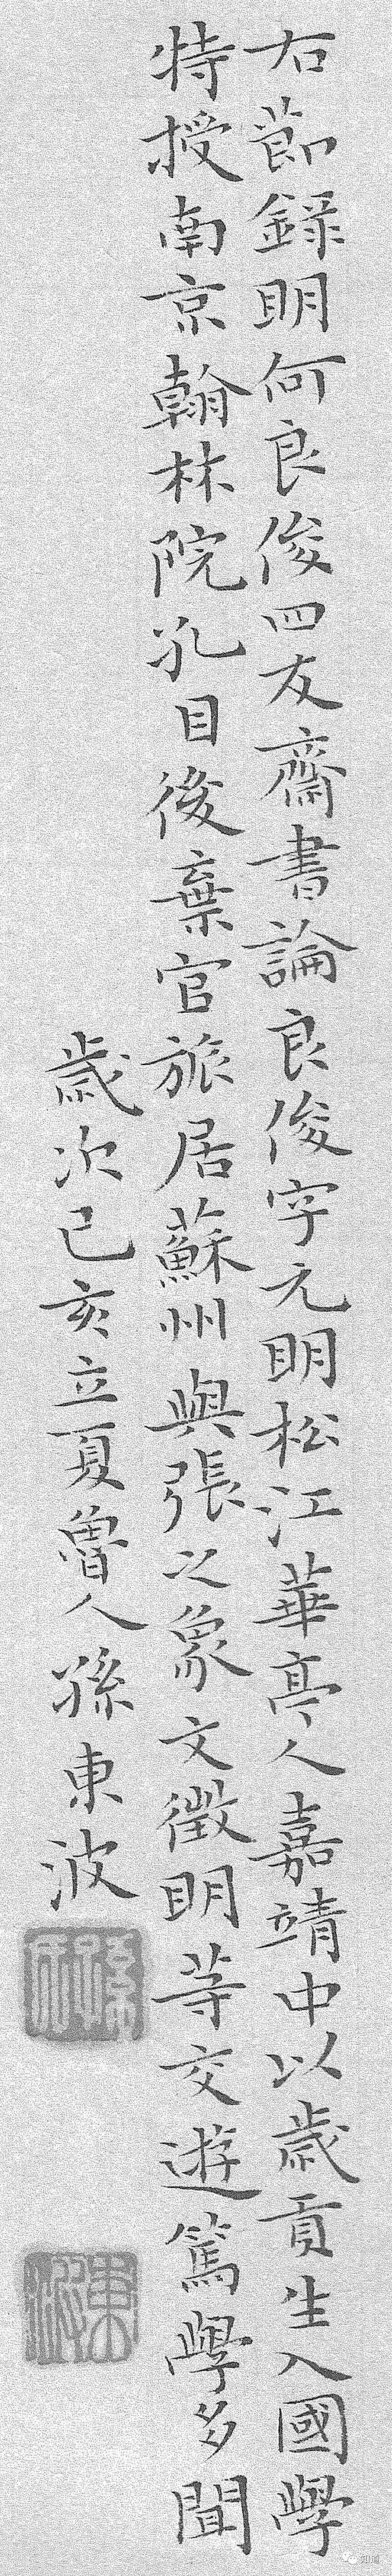 右節録明何良俊四友齋書論良俊字元朗松江華亭人嘉靖中以歲貢生入國學
特授南京翰林院孔目後棄官旅居蘇州與張之象文徵明等交遊篤學多聞
歲次己亥立夏魯人孫東波